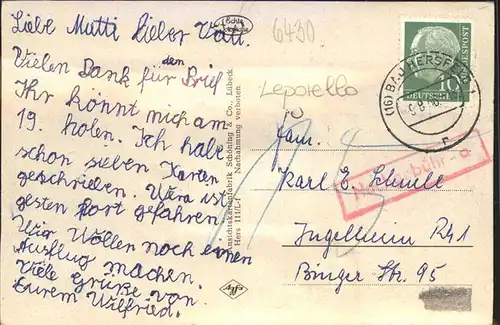 Liebe Mutti lieber Vati.
Vielen Dank für den Brief
Ihr könnt mich am
19. holen. Ich habe
schon sieben Karten
geschrieben. Wara ist
gesten fort gefahren
Wir Wollen noch einen
Ausflug machen.
Viele Grüße von
Eurem Wilfried.
Echte
6430
Leporello
Ansichtskartenfabrik Schöning & Co., Lübeck
Hers 111/L-1 Nachahmung verboten
DEUTSCHE BUNDESPOST
10
(16) BAD HERSFELD
r
Nachgebühr-a
Fam.
Karl E. Schulle
Ingelheim Rh
Binger Str. 95